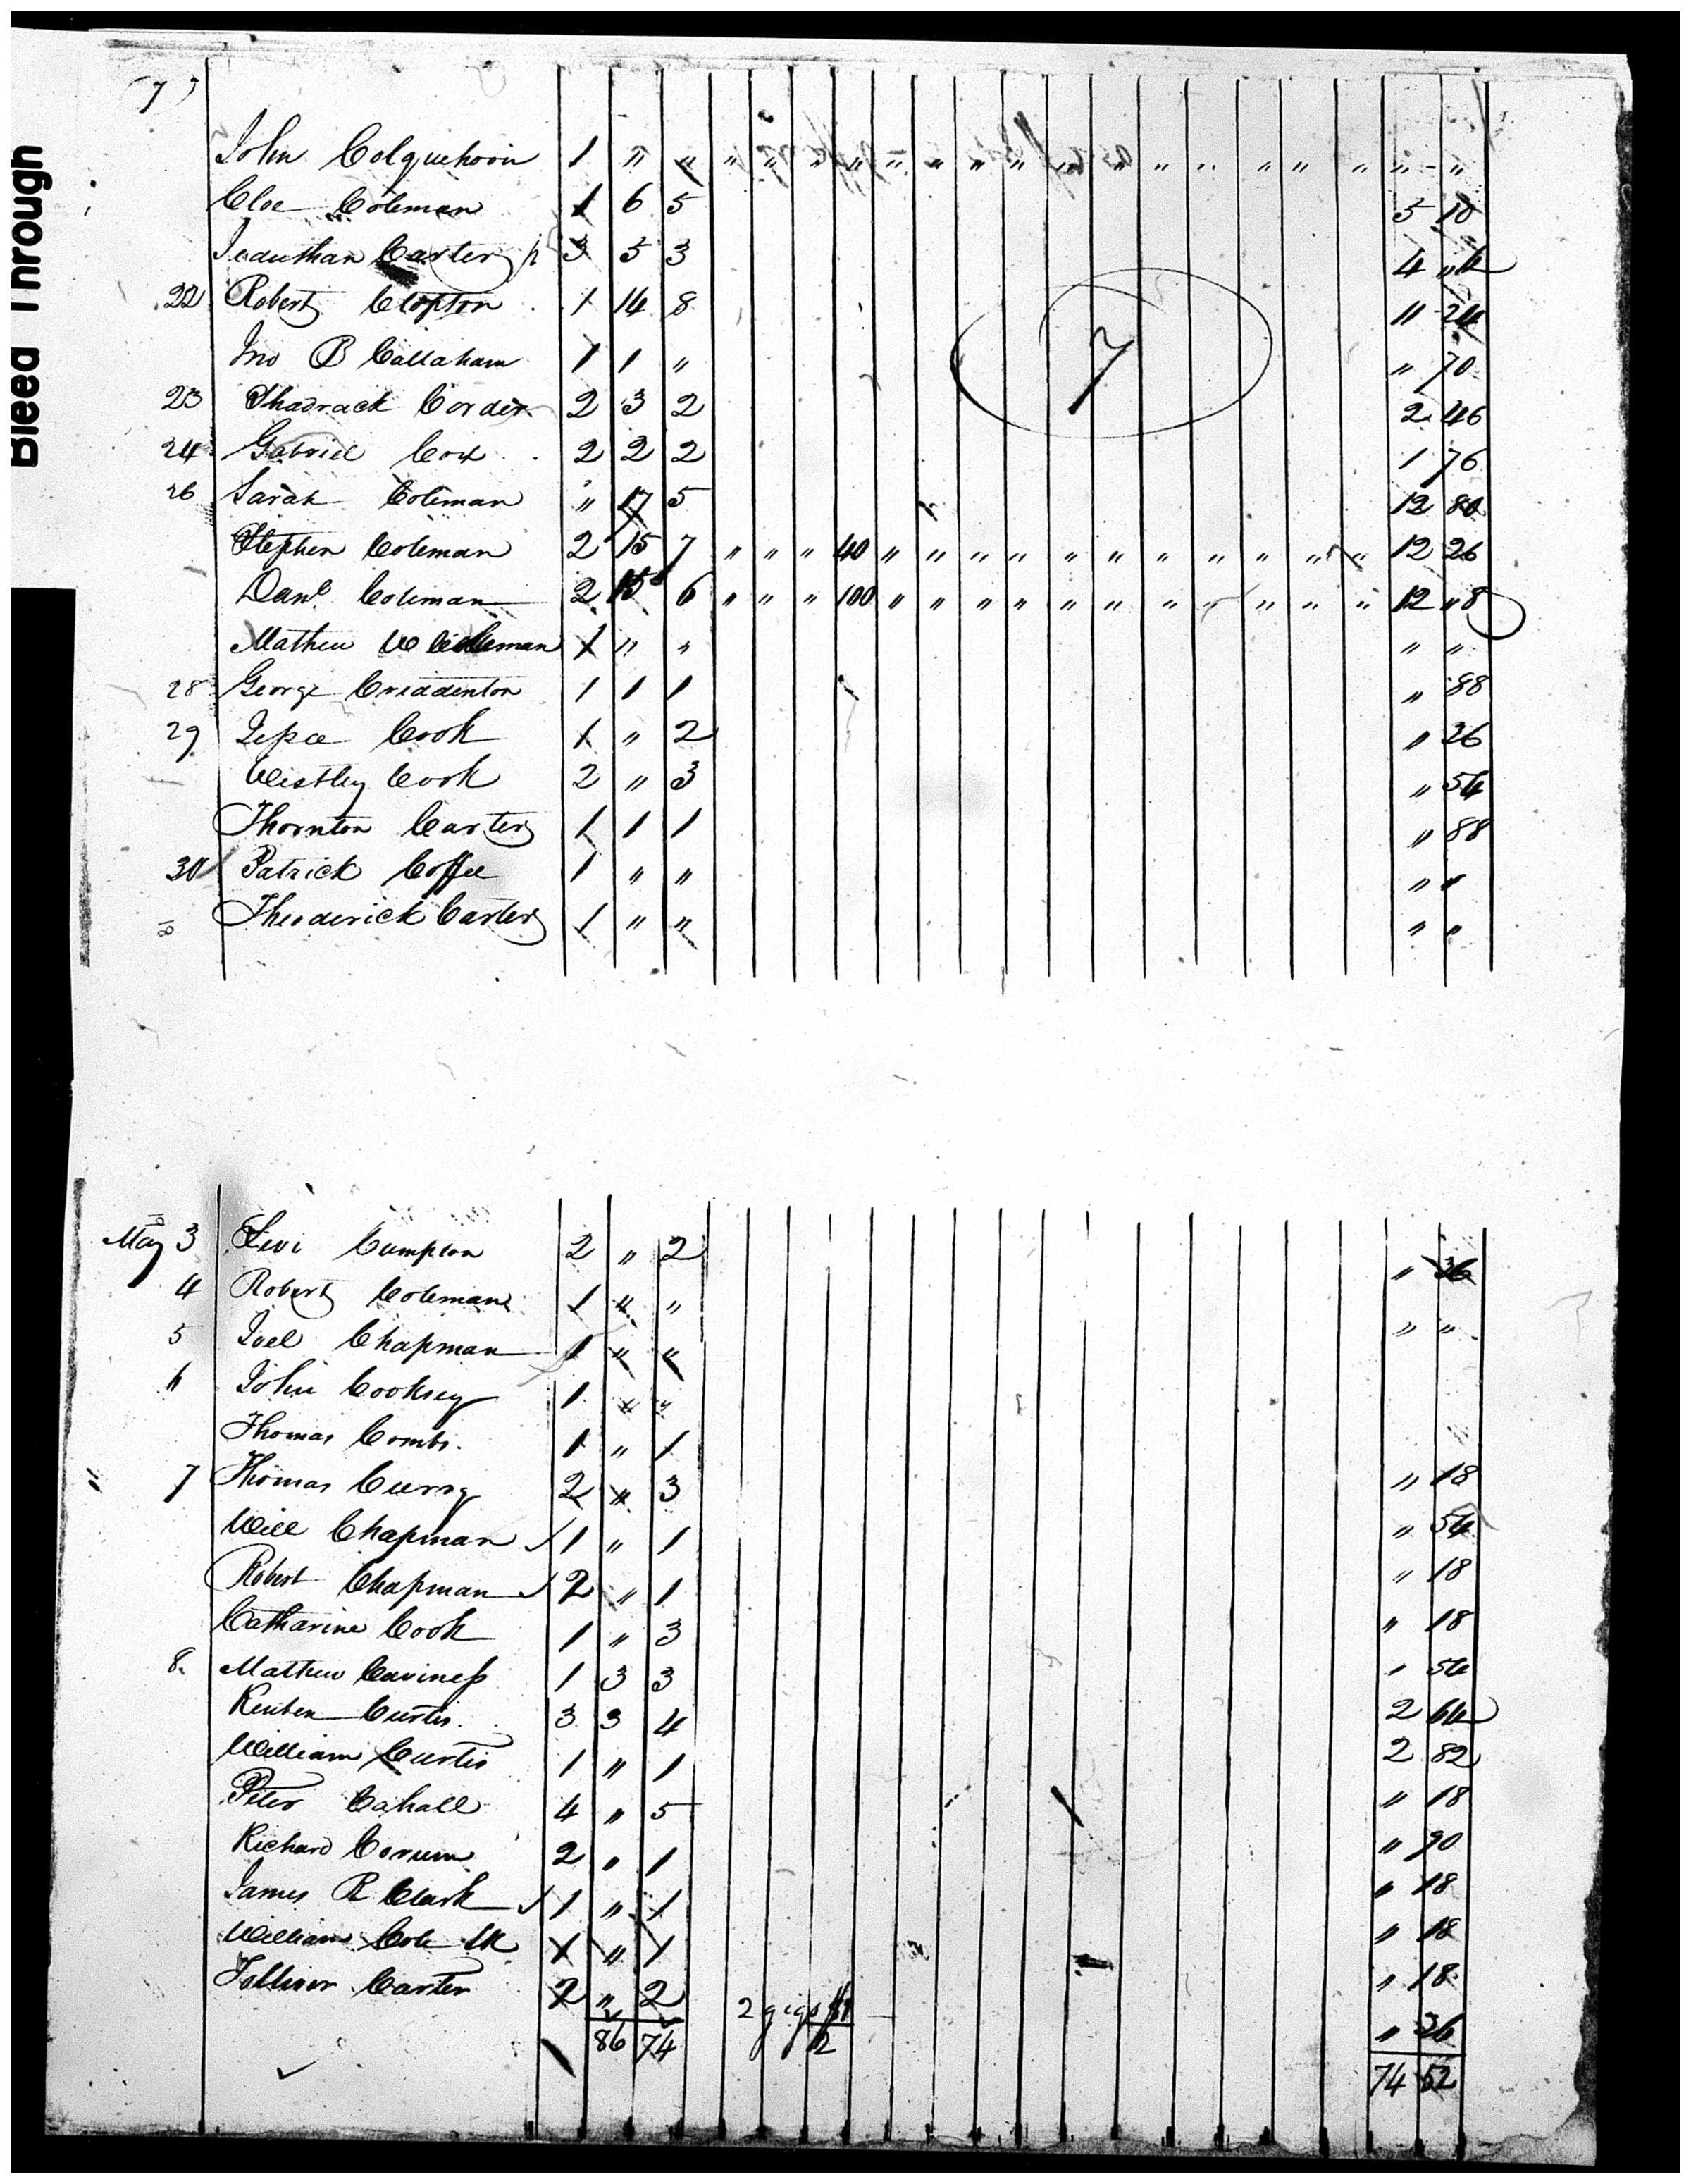 Bleed Through
7
John Colquehoon 1 " " " " " " " " " " " " " " " " " " " "
Cloe Coleman 1 6 5 5 10
Jeduthan Carter p 3 5 3 4 " 4
22 Robert Clopton 1 14 8 11 24
Jno B Callaham 1 1 " " 70
23 Shadrack Corder 2 3 2 2 46
24 Gabriel Cox 2 2 2 1 76
26 Sarah Coleman " 17 5 12 80
Stephen Coleman 2 15 7 " " " 40 " " " " " " " " " " " 12 26
Danl Coleman 2 15 6 " " " 100 " " " " " " " " " " " 12 " 8
Mathew Coleman 1 " " " "
28 George Criddenton 1 1 1 " 88
29 Jesse Cook 1 " 2 " 36
Westley Cook 2 " 3 " 54
Thornton Carter 1 1 1 " 88
30 Patrick Coffee 1 " " " "
Theoderick Carter 1 " " " "
7
May 3 Levi Cumpton 2 " 2 " 36
4 Robert Coleman 1 " " " "
5 Joel Chapman 1 " "
6 John Cooksey 1 " "
Thomas Combs 1 " 1 " 18
7 Thomas Curry 2 " 3 " 54
Will Chapman 1 " 1 " 18
Robert Chapman 2 " 1 " 18
Catharine Cook 1 " 3 " 54
8 Mathew Caviness 1 3 3 2 64
Reuben Curtis 3 3 4 2 82
William Curtis 1 " 1 " 18
Peter Cahall 4 " 5 " 90
Richard Corum 2 " 1 " 18
James R Clark 1 " 1 " 18
William Cole 1 " 1 " 18
Tolliver Carter 2 " 2 " 36
86 74 2 gigs 74 52